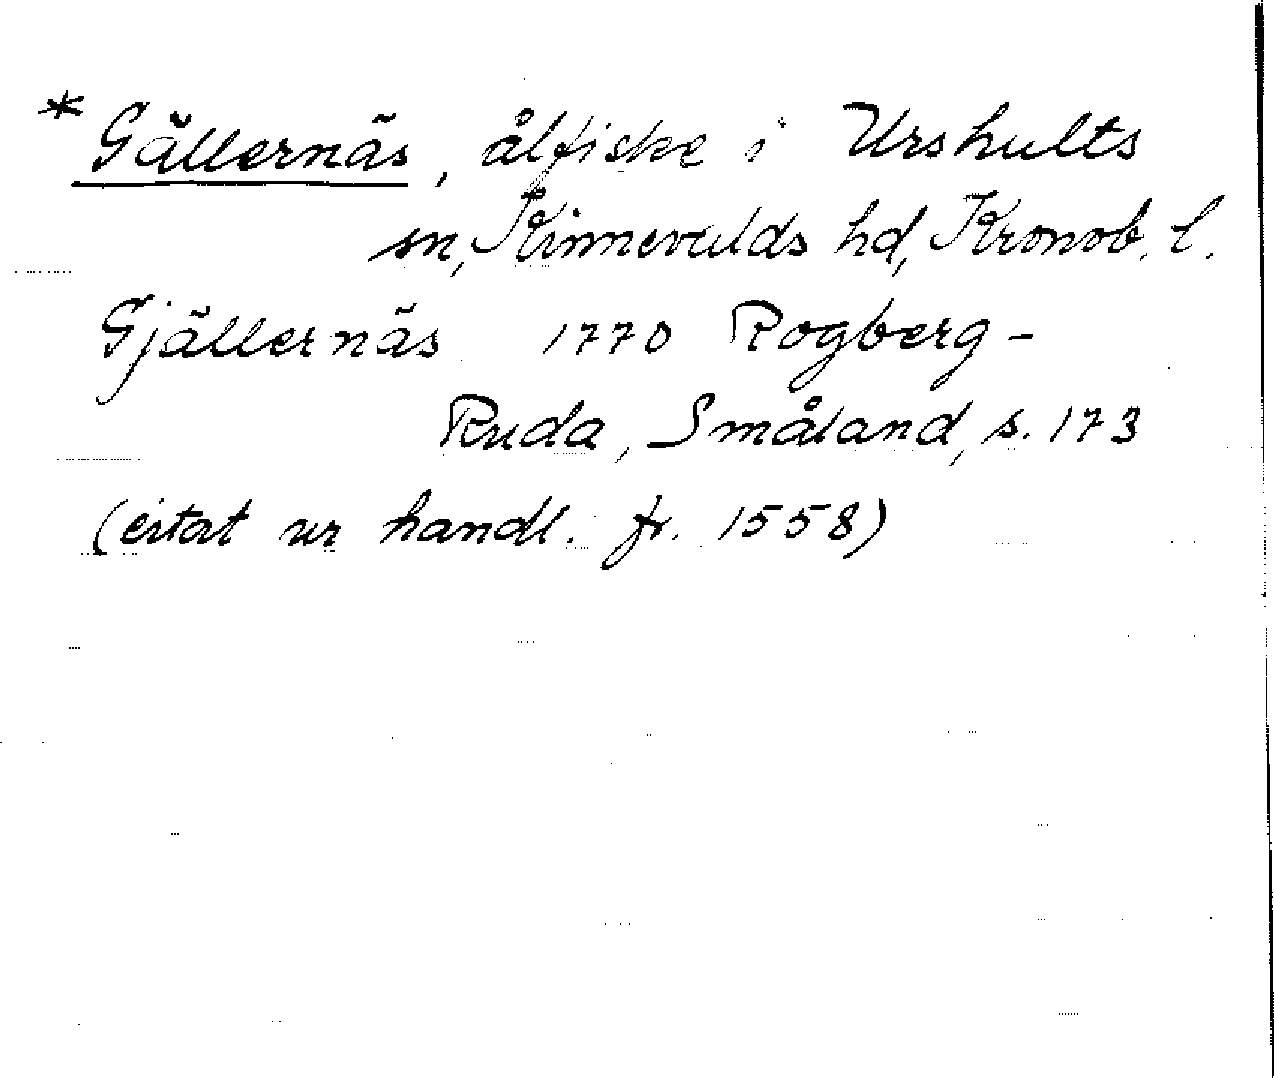 * Gällernäs, ålfiske i Urshults
sn, Kinnevalds hd, Kronob. l.
Gjällernäs 1770 Rogberg-
Ruda, Småland, s. 173
(citat ur handl. fr. 1558)